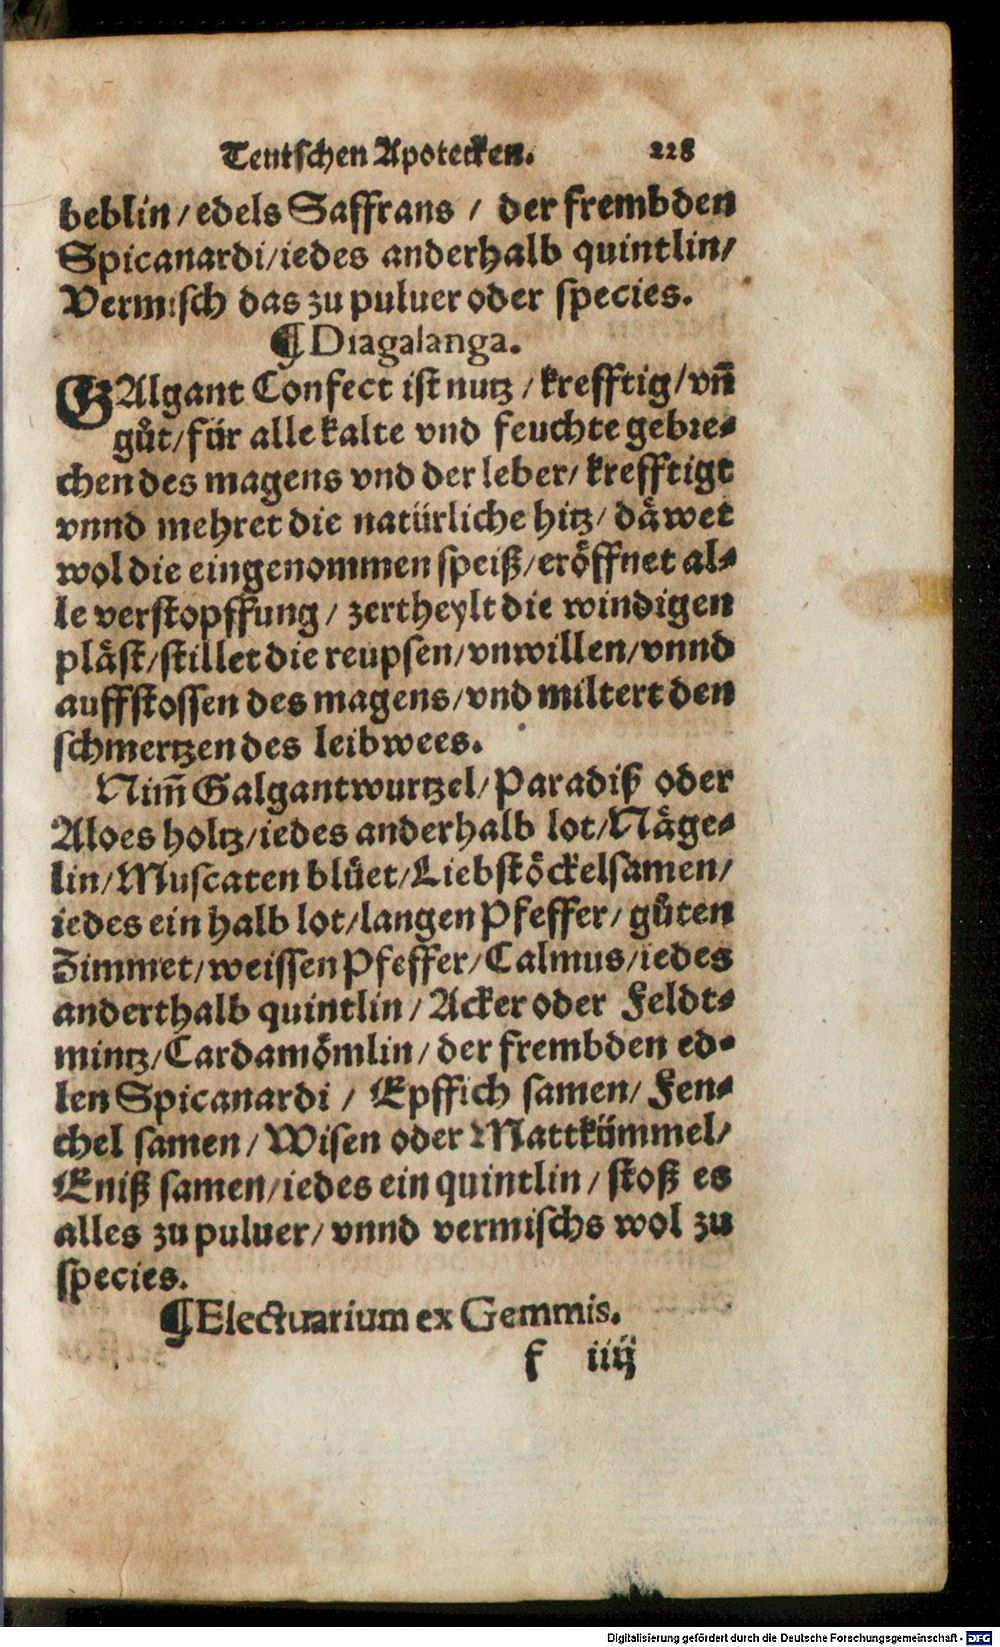 Teutschen Apotecken. 228
beblin / edels Saffrans / der frembden
Spicanardi / iedes anderhalb quintlin /
Vermisch das zu puluer oder species.
¶ Diagalanga.
GAlgant Confect ist nutz / krefftig / vn̄
gůt / für alle kalte vnd feuchte gebre⸗
chen des magens vnd der leber / krefftigt
vnnd mehret die natürliche hitz / däwet
wol die eingenommen speiß / eröffnet al⸗
le verstopffung / zertheylt die windigen
pläst / stillet die reupsen / vnwillen / vnnd
auffstossen des magens / vnd miltert den
schmertzen des leibwees.
Nim̄ Galgantwurtzel / Paradiß oder
Aloes holtz / iedes anderhalb lot / Näge⸗
lin / Muscaten blůet / Liebstöckelsamen /
iedes ein halb lot / langen Pfeffer / gůten
Zimmet / weissen Pfeffer / Calmus / iedes
anderthalb quintlin / Acker oder Feldt⸗
mintz / Cardamömlin / der frembden ed⸗
len Spicanardi / Epffich samen / Fen⸗
chel samen / Wisen oder Mattkümmel /
Eniß samen / iedes ein quintlin / stoß es
alles zu puluer / vnnd vermischs wol zu
species.
¶ Electuarium ex Gemmis.
f iiij
Digitalisierung gefördert durch die Deutsche Forschungsgemeinschaft - DFG